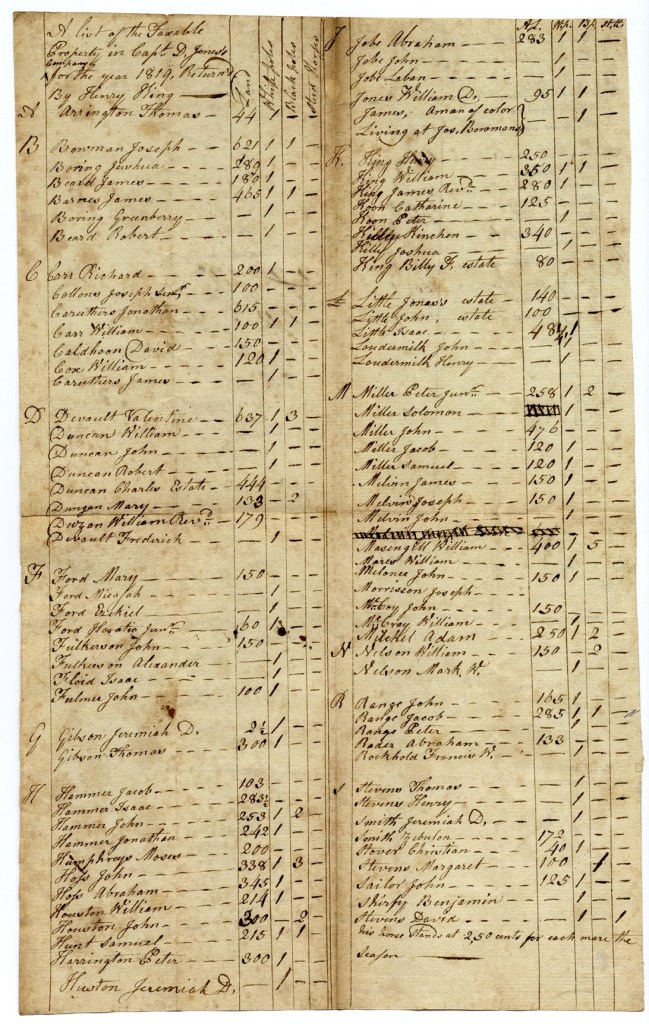 A list of the Taxable
Property in Capt. D. Jones's
Company
for the year 1819, Returnd
By Henry King —
Land
White poles
Black poles
Stud Horses
A Arrington Thomas — 44 1
B Bowman Joseph — 621 1 1 —
Boring Joshua — 280 1 — —
Beard James — 180 1 — —
Barnes James — 465 1 1 —
Boring Greenberry — — 1 — —
Beard Robert — — 1 — —
C Carr Richard — 200 1 — —
Collons Joseph Senr. 100 — — —
Caruthers Jonathan — 615 — — —
Carr William — 100 1 1 —
Caldhoon David 150 — — —
Cox William — 120 1 — —
Caruthers James — — 1 — —
D Devault Valentine — 637 1 3 —
Duncan William — — 1 — —
Duncan John — — 1 — —
Duncan Robert — — 1 — —
Duncan Charles Estate — 444 — — —
Dungan Mary — 133 — 2 —
Duzan William Revd. — 179 — — —
Devault Frederick — — 1 — —
F Ford Mary — 150 — — —
Ford Micajah — — 1 — —
Ford Ezekiel — — 1 — —
Ford Horatio Junr. 60 1 — —
Fulkerson John — 150 — — —
Fulkerson Alexander — — 1 — —
Floid Isaac — — 1 — —
Fulmer John — 100 1 — —
G Gibson Jeremiah D. 2½ 1 — —
Gibson Thomas — 300 1 — —
H Hammer Jacob — 103 — — —
Hammer Isaac — 283½ — — —
Hammer John — 253 1 2 —
Hammer Jonathan — 242 1 — —
Humphreys Moses — 200 — — —
Hoss John — 338 1 3 —
Hoss Abraham — 345 1 — —
Houston William — 214 1 — —
Houston John — 300 — 2 —
Hunt Samuel — 215 1 1 —
Harrington Peter — 300 1 — —
Huston Jeremiah D. — 1 — —
Wp. Bp. St. H.
J Jobe Abraham — 283 1 1 —
Jobe John — — 1 — —
Jobe Laban — — 1 — —
Jones William D. — 95 1 1 —
James, A man of color
Living at Jos. Bowmans — 1 —
K. King Henry 250 — — —
King William — 350 1 1 —
King James Revd. — 280 1 — —
Koon Catharine — 125 — — —
Koon Peter — — 1 — —
Killy Kinchen — 340 — — —
Killy Joshua — 1 — —
King Billy F. estate 80 — — —
L Little Jonas's estate — 140 — — —
Little John, estate 100 — — —
Little Isaac — 48¼ 1 — —
Loudermilk John — — 1 — —
Loudermilk Henry — 1 — —
M Miller Peter Junr. — 258 1 2 —
Miller Solomon — 1 — —
Miller John — 476 — — —
Miller Jacob — 120 1 — —
Miller Samuel — 120 1 — —
Melvin James — 150 1 — —
Melvin Joseph — 150 1 — —
Melvin John — — 1 — —
Masengell William — 400 1 5 —
Mares William — — 1 — —
Melone John — 150 1 — —
Morrisson Joseph — — 1 — —
McCoy John — 150 — — —
McCray William — — 1 — —
Mitchel Adam — 250 1 2 —
N Nelson William — 150 — 2 —
Nelson Mark W. — 1 — —
R Range John — 165 1 — —
Range Jacob — 285 1 1 —
Range Peter — — 1 — —
Rader Abraham — 133 — — —
Rockhold Francis W. — 1 — —
S Stevens Thomas — — 1 — —
Stevens Henry — — 1 — —
Smith Jeremiah D. — — 1 — —
Smith Zebulon — 172 — — —
Stover Christian — 40 1 — —
Stevens Margaret — 100 — 1 —
Sailor John — 125 1 — —
Shirfy Benjamin — — 1 — —
Stevens David — — 1 — 1
his horse Stands at 250 cents for each mare the
Season —